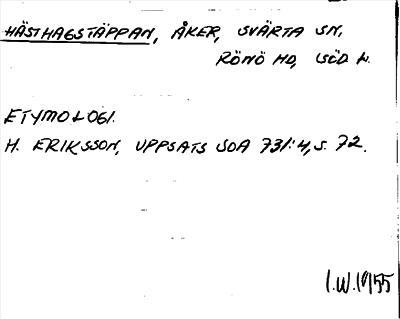 HÄSTHAGSTÄPPAN, ÅKER, SVÄRTA SN,
RÖNÖ HD, SÖD L.
ETYMOLOGI.
H. ERIKSSON, UPPSATS SOA 731:4, S. 72.
I.W. 1955